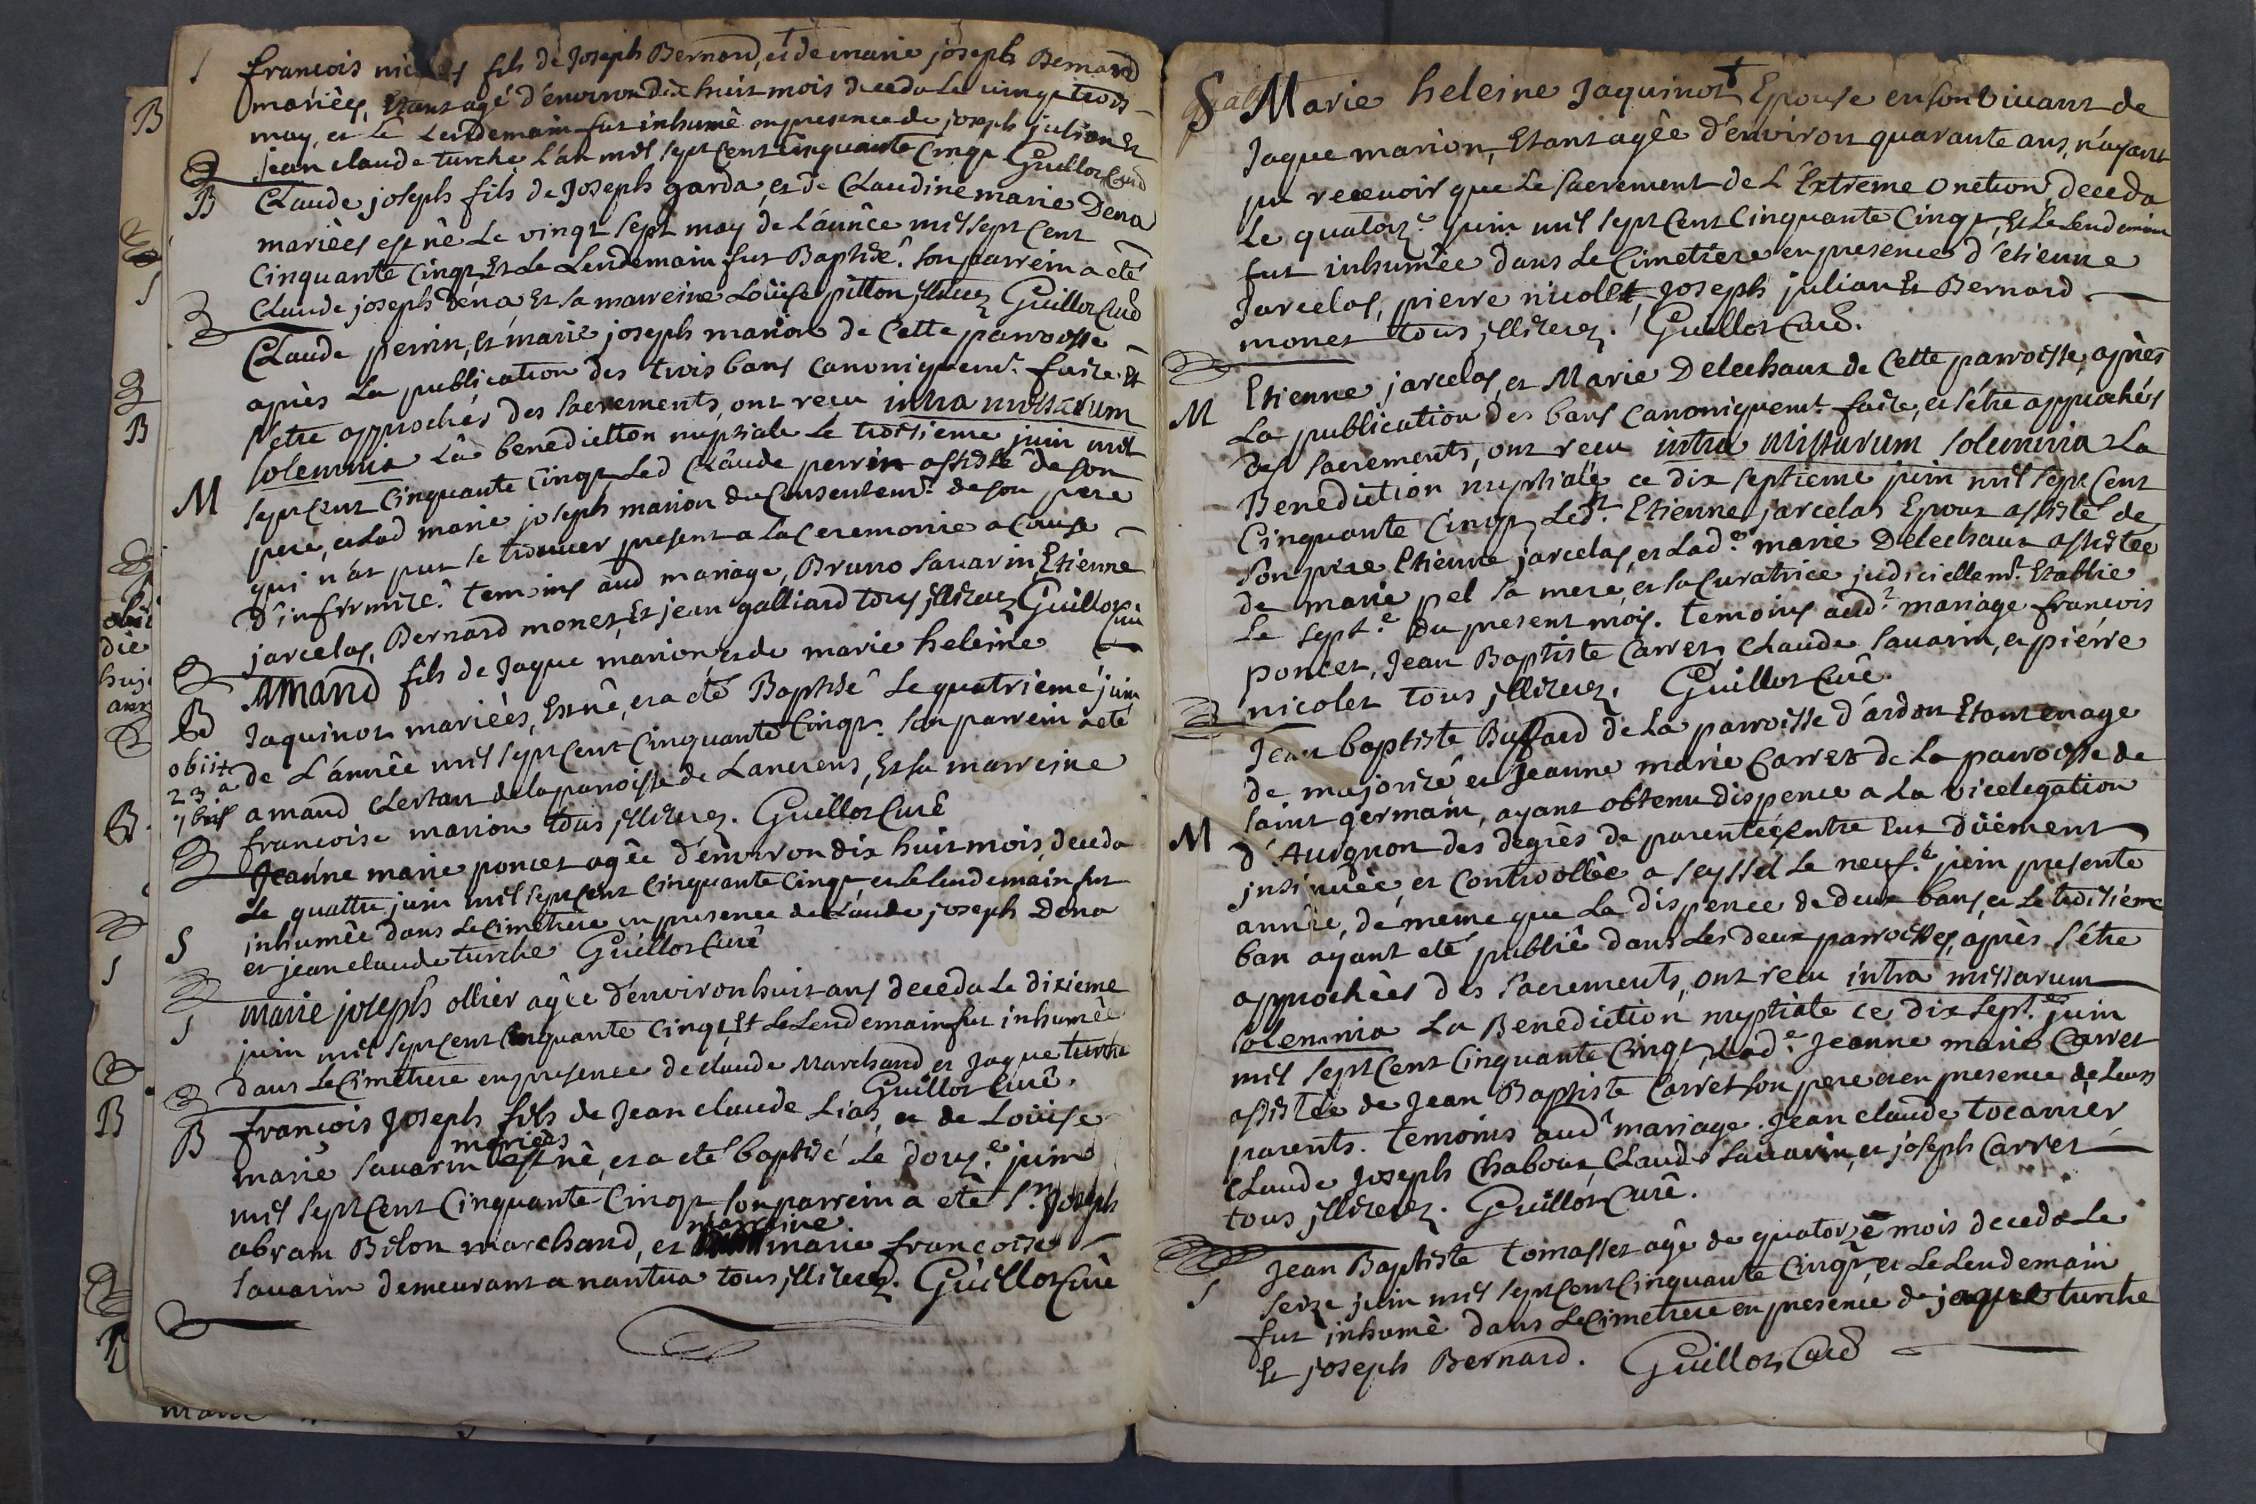 S
francois nicolas fils de Joseph Bernard, et de marie joseph Bernard
mariées, Etant agé d'environ dix huit mois deceda le vingt trois
may, et le lendemain fut inhumê en presence de joseph julian Et
jean claude turche, l'an mil sept cent Cinquante Cinqt Guillot Curê
B
Claude joseph fils de Joseph garda, et de Claudine marie Dena
mariêes est nê le vingt sept may de l'annêe mil sept Cent
Cinquante Cinqt, Et le Lendemain fut Baptisê. Son parrein a etê
Claude joseph Dena, Et sa marreine Loüise pitton, illiterez Guillot Curê
Claude perrin, et marie joseph marion de Cette parroisse
après la publication des trois bans Canoniquemt. faite, Et
s'être approchés des Sacrements, ont recu intra missarum
M
solemnia la benediction nuptiale le troisieme juin mil
sept Cent Cinquante Cinqt Led Claude perrin assistê de son
pere, et Lad marie joseph marion du Consentemt. de son pere
qui n'at put se trouver present a la Ceremonie a Cause
d'infirmitê. temoins aud mariage, Bruno Savarin, Etienne
jarcelas, Bernard monet, Et jean galliard tous illiterez Guillot Curê
B
Amand fils de Jaque marion, et de marie heleine
Jaquinot mariêes, Est nê, et a etê Baptisê le quatrieme juin
obiit
23a
7bris
de L'annêe mil sept Cent Cinquante Cinqt. Son parrein a etê
amand Clertan de la parroisse de Lancrens, Et sa marreine
francoise marion tous illiterez. Guillot Curê
Jeanne marie poncet agêe d'environ dix huit mois, deceda
le quattre juin mil sept Cent Cinquante Cinqt, et le lendemain fut
S
inhumêe dans le Cimetiere en presence de Claude joseph Dena
et jean claude turche Guillot Curê
marie joseph ollier agêe d'environ huit ans deceda le dixieme
S
juin mil sept Cent Cinquante Cinqt, Et le Lendemain fut inhumêe
dans le Cimetiere en presence de claude Marchand et Jaque turche
Guillot Curê.
B
francois Joseph fils de Jean claude Lias, et de Loüise
mariêes
marie Savarin est nê, et a etê baptisé le douze. juin
mil sept Cent Cinquante Cinqt son parrein a etê Sr. Joseph
marreine
abram Bilon marchand, et marie francoise
Savarin demeurant a nantua tous illiterez. Guillot Curê
S Marie heleine Jaquinot Epouse en son vivant de
Jaque marion, Etant agêe d'environ quarante ans, n'ayant
pu recevoir que le Sacrement de L'Extreme onction, deceda
le quatorze. juin mil sept Cent Cinquante Cinqt, Et le Lendemain
fut inhumêe dans le Cimetiere en presence d'etienne
Jarcelas, pierre nicolet, Joseph julian Et Bernard
monet tous illiterez. Guillot Curê.
Etienne jarcelas, et Marie Delechaux de Cette parroisse, après
M
La publication des bans Canoniquemt. faite, et s'être approchés
des Sacrements, ont recu intra missarum solemnia La
Benediction nuptiale ce dix septieme juin mil sept Cent
Cinquante Cinqt, Ledt. Etienne jarcelas Epoux assisté de
son pere Etienne jarcelas, et Lade. marie Delechaux assistêe
de marie pel sa mere, et sa Curatrice judiciellemt. Etablie
Le septe. du present mois. temoins audt mariage francois
poncet, Jean Baptiste Carret, Claude Savarin, et pierre
nicolet tous illiterez. Guillot Curê.
Jean baptiste Buffard de La parroisse d'ardon Etant en age
de majorité, et Jeanne marie Carret de La parroisse de
saint germain, ayant obtenu dispence a La vicelegation
M
d'Avignon des degrès de parentêe, entre Eux düêment
insinuêe, et Controollêe a seyssel Le neufe. juin presente
annêe, de même que La dispence de deux bans, et Le troisieme
ban ayant etê publiê dans Les deux parroisses, après s'être
approchêes des Sacrements, ont recu intra missarum
solemnia La Benediction nuptiale ce dix septe. juin
mil sept Cent Cinquante Cinqt, Lade. Jeanne marie Carret
assistêe de Jean Baptiste Carret son pere et en presence de Leurs
parents. temoins audt mariage. Jean claude tocanier
Claude Joseph Chaboux, Claude Savarin, et joseph Carret
tous illiterez. Guillot Curê.
Jean Baptiste tomasset agê de quatorze mois deceda Le
S
seize juin mil sept Cent Cinquante Cinqt, et Le Lendemain
fut inhumê dans Le Cimetiere en presence de jaque turche
Et joseph Bernard. Guillot Curê